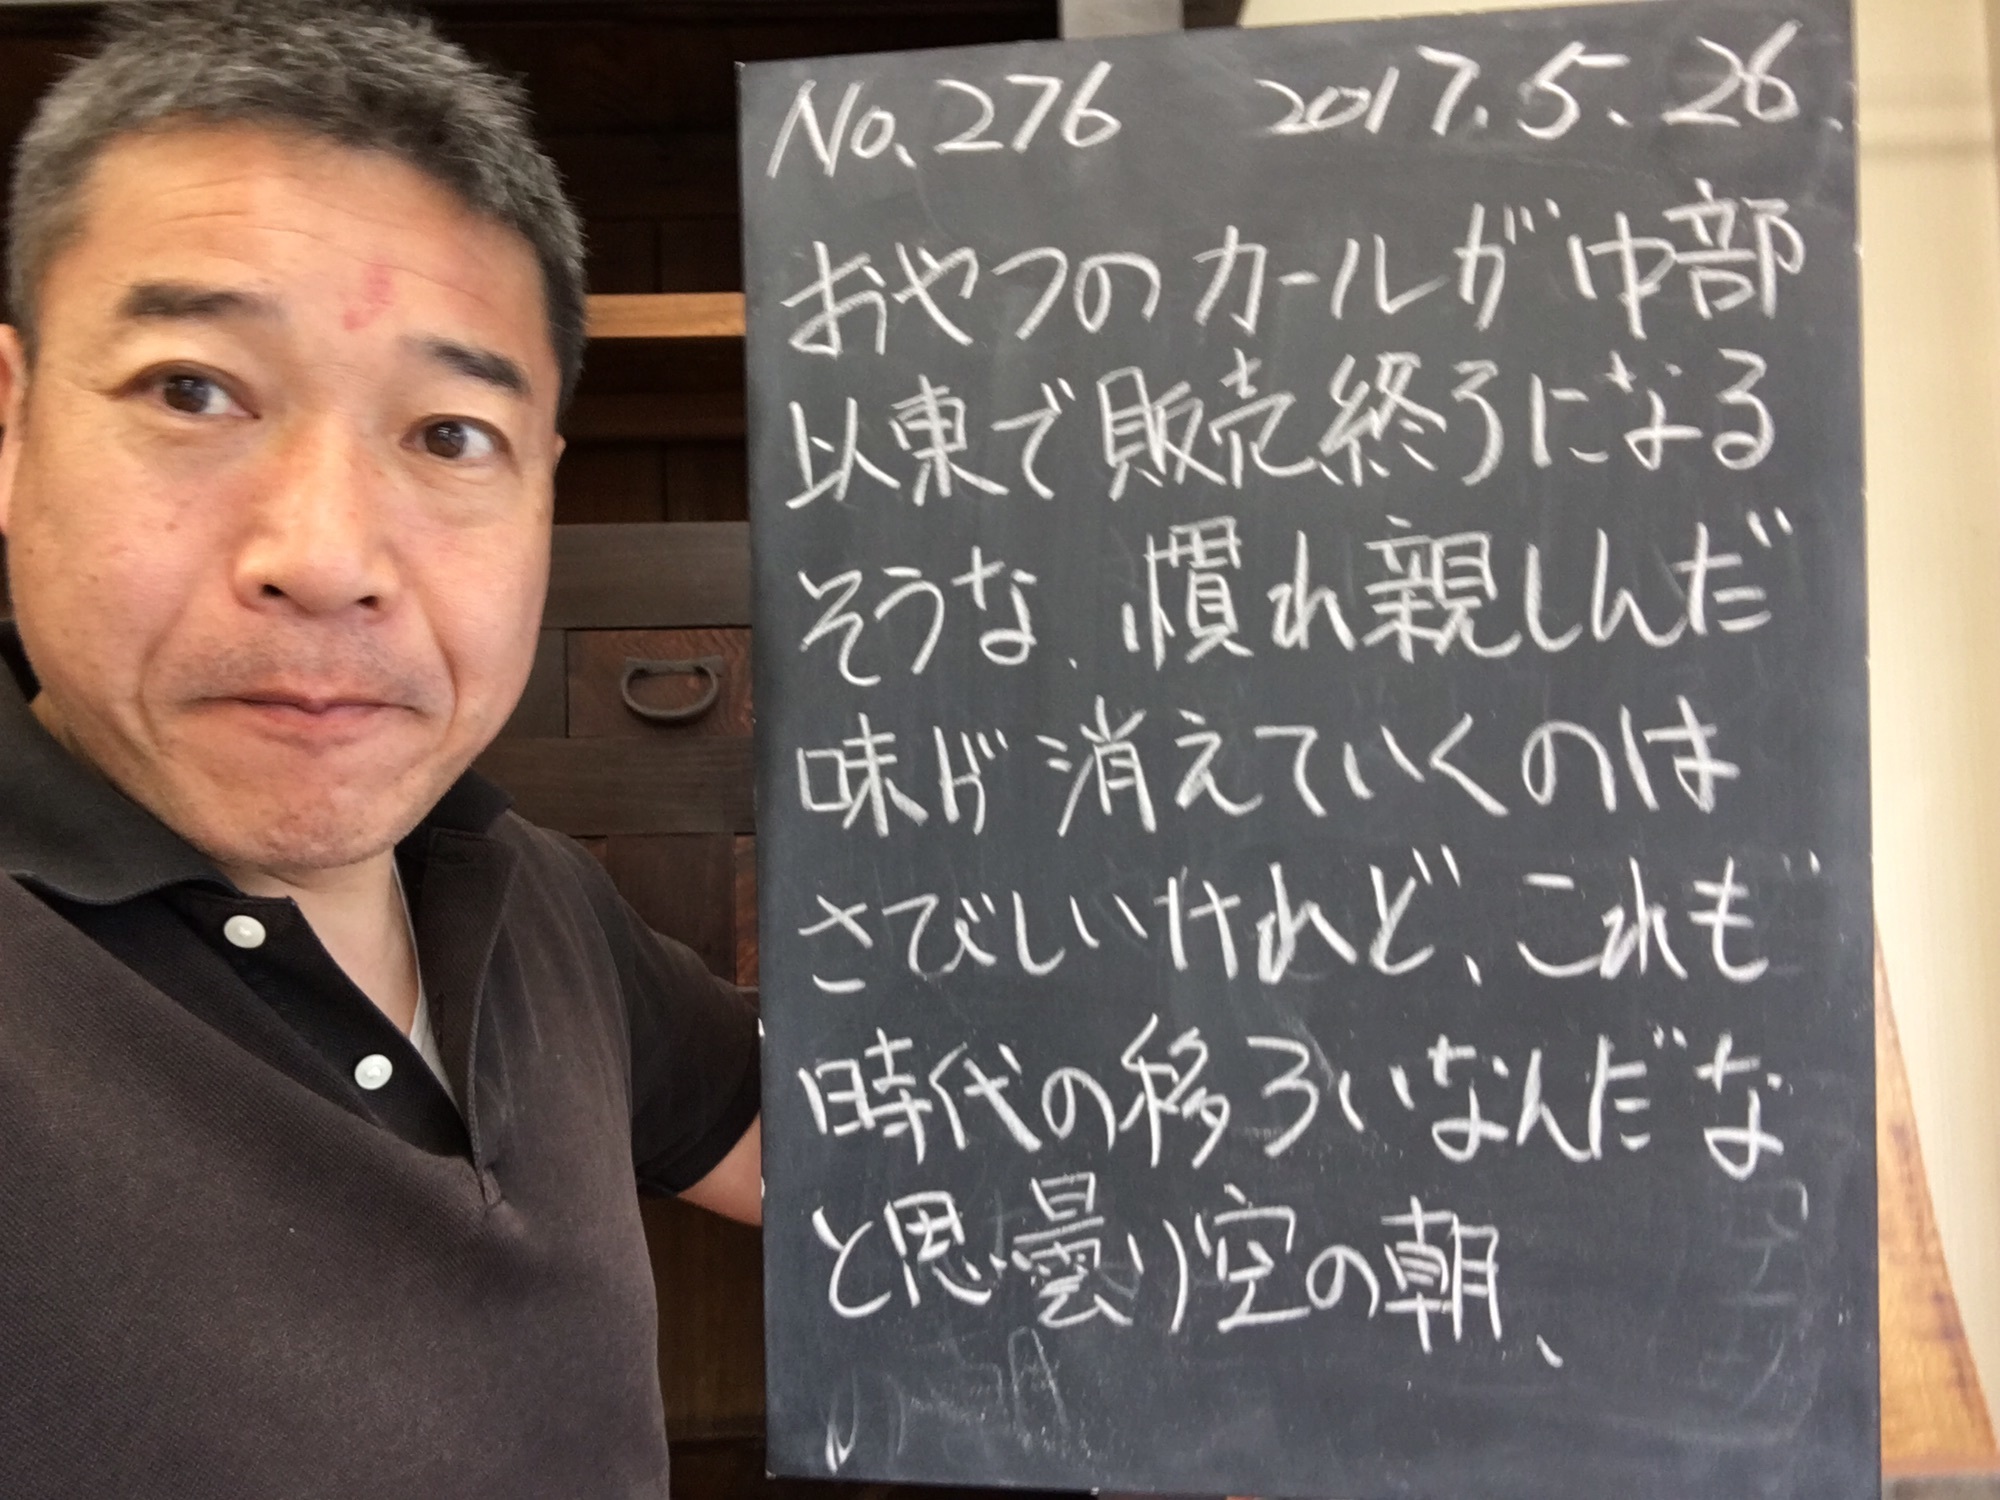 No.276 2017.5.26.
おやつのカールが中部
以東で販売終了になる
そうな、慣れ親しんだ
味が消えていくのは
さびしいけれど、これも
時代の移ろいなんだな
と思う曇り空の朝、